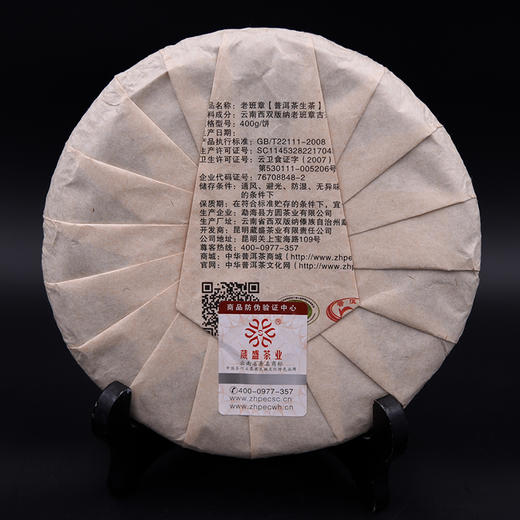 品名：老班章【普洱茶生茶】
料成分：云南西双版纳老班章古
格型号：400g/饼
生产日期：
产品执行标准：GB/T22111-2008
生产许可证号：SC1145328221704
卫生许可证号：云卫食证字（2007）
第530111-005206号
企业代码证号：76708848-2
储存条件：通风、避光、防湿、无异味
的条件下
保质期：在符合标准贮存的条件下，宜
生产企业：勐海县方圆茶业有限公司
生产厂址：云南省西双版纳傣族自治州勐
开发商：昆明藏盛茶业有限责任公司
公司地址：昆明关上宝海路109号
尊客热线：400-0977-357
商城：中华普洱茶商城（http://www.zhpe
官网：中华普洱茶文化网（http://www.z
商品防伪验证中心
藏盛茶业
云南省著名商标
400-0977-357
www.zhpecsc.cn
www.zhpecwh.cn
普洱